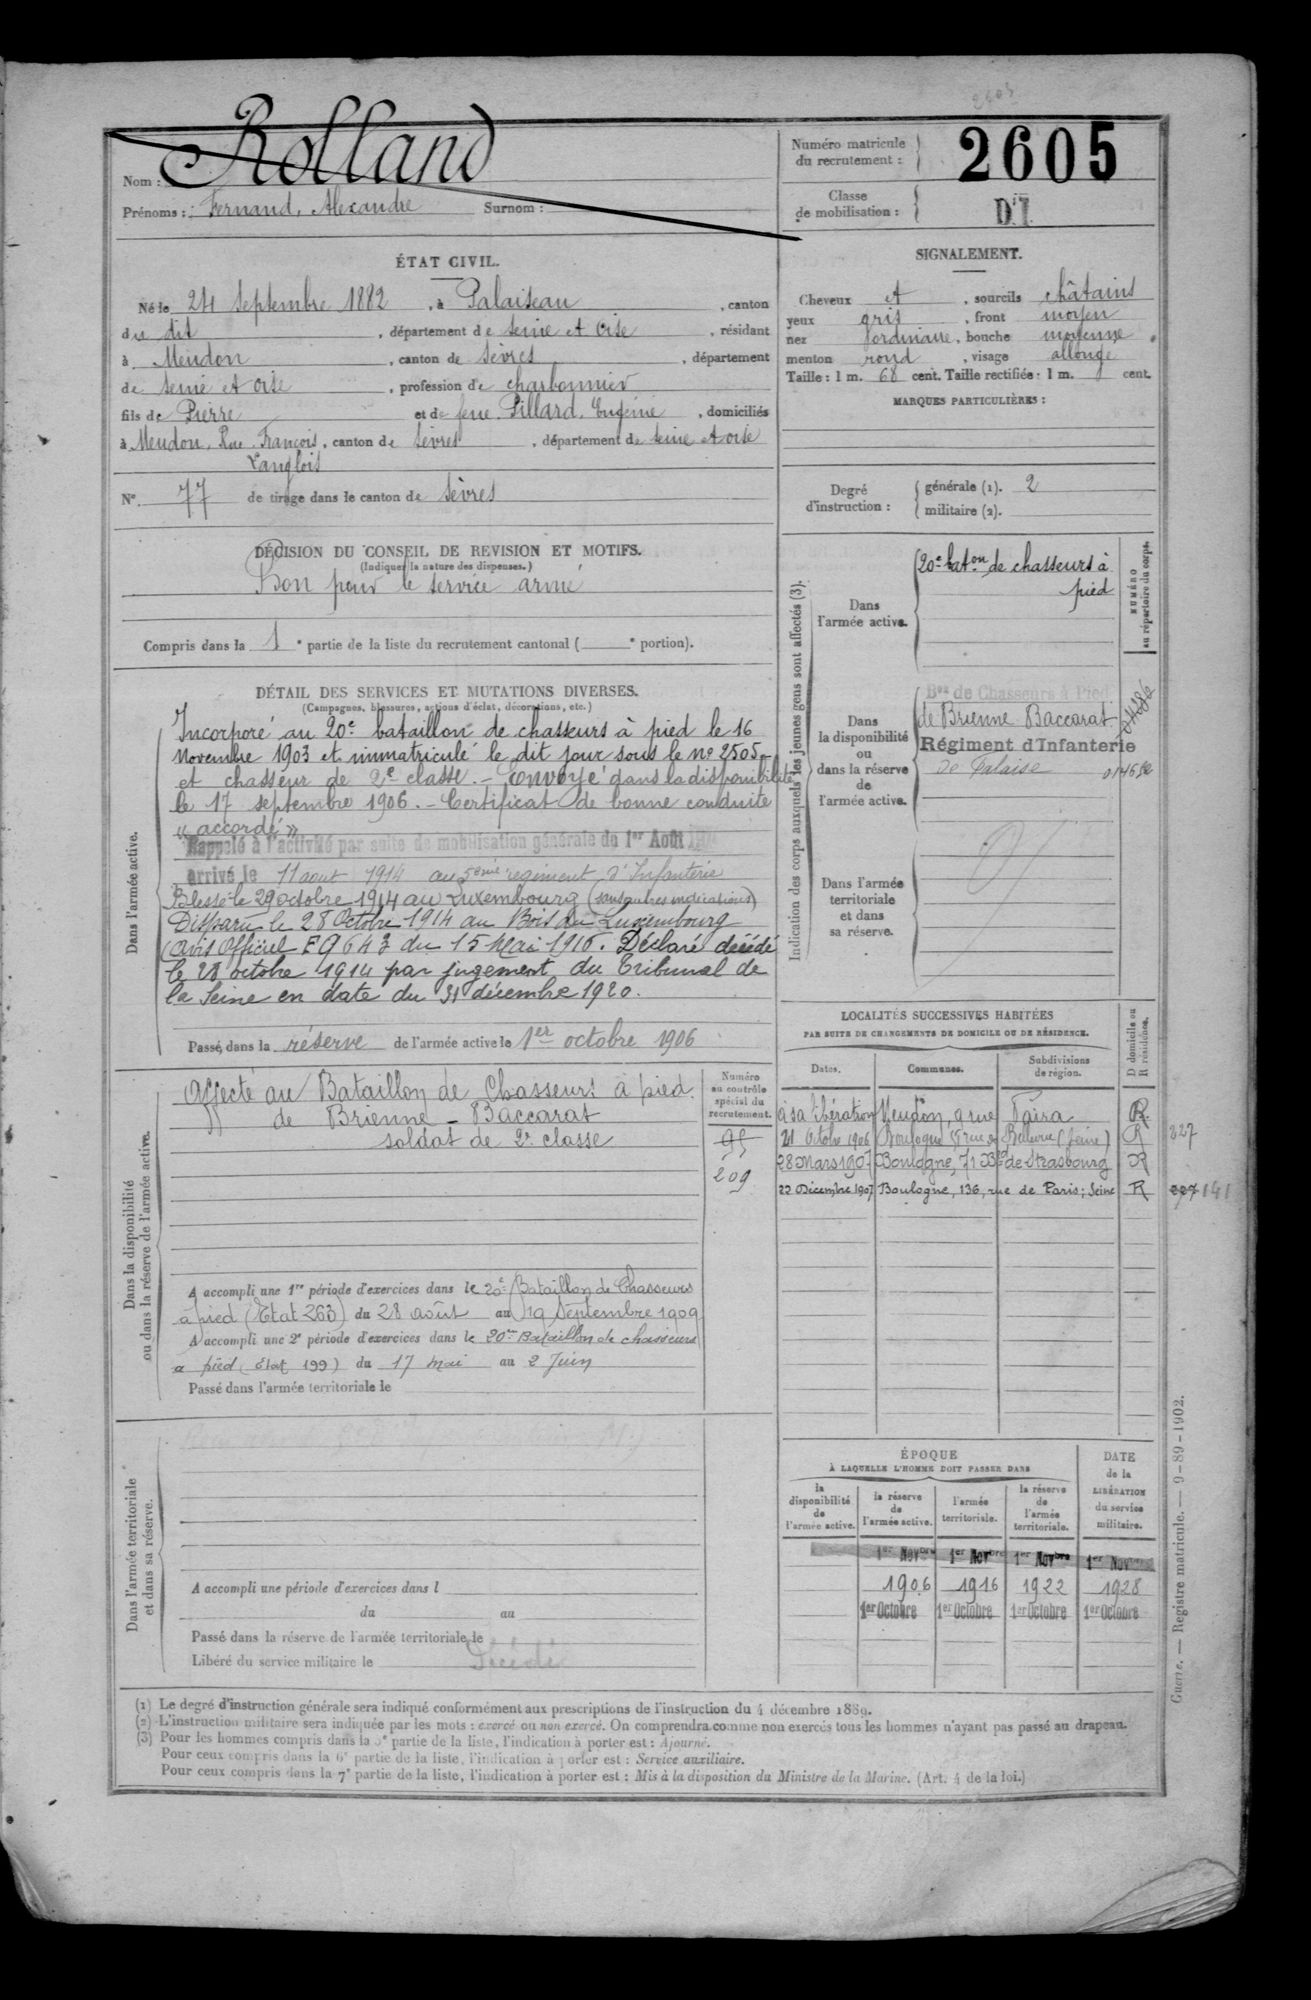 2605
Rolland
Nom :
Prénoms : Fernand, Alexandre Surnom :
Numéro matricule
du recrutement :
2605
Classe
de mobilisation :
D'I
ÉTAT CIVIL.
Né le 24 septembre 1882, à Palaiseau, canton
du dit, département de Seine et Oise, résidant
à Meudon, canton de Sèvres, département
de Seine et Oise, profession de charbonnier
fils de Pierre et de feue Pillard, Eugénie, domiciliés
à Meudon, Rue François, canton de Sèvres, département de Seine et Oise
Langlois
N° 77 de tirage dans le canton de Sèvres
SIGNALEMENT.
Cheveux et, sourcils châtains
yeux gris, front moyen
nez ordinaire, bouche moyenne
menton rond, visage allongé
Taille : 1 m. 68 cent. Taille rectifiée : 1 m. cent.
MARQUES PARTICULIÈRES :
Degré
d'instruction :
générale (1). 2
militaire (2).
DÉCISION DU CONSEIL DE REVISION ET MOTIFS.
(Indiquer la nature des dispenses.)
Bon pour le service armé
Compris dans la 1e partie de la liste du recrutement cantonal ( e portion).
DÉTAIL DES SERVICES ET MUTATIONS DIVERSES.
(Campagnes, blessures, actions d'éclat, décorations, etc.)
Dans l'armée active.
Incorporé au 20e bataillon de chasseurs à pied le 16
Novembre 1903 et immatriculé le dit jour sous le no 2505
et chasseur de 2e classe. – Envoyé dans la disponibilité
le 17 septembre 1906. – Certificat de bonne conduite
"accordé"
Rappelé à l'activité par suite de mobilisation générale du 1er Août
arrivé le 11 aout 1914 au régiment d'Infanterie
Blessé le 29 octobre 1914 au Luxembourg (sans autres indications)
Disparu le 28 Octobre 1914 au Bois du Luxembourg
(avis Officiel F 9643 du 15 Mai 1916. Déclaré décédé
le 28 octobre 1914 par jugement du Tribunal de
la Seine en date du 31 décembre 1920.
Passé dans la réserve de l'armée active le 1er octobre 1906
Indication des corps auxquels les jeunes gens sont affectés (3).
NUMÉRO
au répertoire du corps.
Dans
l'armée active.
20e baton de chasseurs à
pied
Dans
la disponibilité
ou
dans la réserve
de
l'armée active.
Bon de Chasseurs à Pied
de Brienne Baccarat
Régiment d'Infanterie
de Falaise
Dans l'armée
territoriale
et dans
sa réserve.
LOCALITÉS SUCCESSIVES HABITÉES
PAR SUITE DE CHANGEMENTS DE DOMICILE OU DE RÉSIDENCE.
Dates. Communes. Subdivisions
de région.
D domicile ou
R résidence.
à sa libération Meudon, 9 rue R.
21 Octobre 1906 Boulogne, rue de Bellevue (Seine) R 227
28 Mars 1907 Boulogne, 71 Bd de Strasbourg R
22 Décembre 1907 Boulogne, 136, rue de Paris ; Seine R 227 141
Dans la disponibilité
ou dans la réserve de l'armée active.
Numéro
au contrôle
spécial du
recrutement.
Affecté au Bataillon de Chasseurs à pied
de Brienne – Baccarat
soldat de 2e classe
209
A accompli une 1re période d'exercices dans le 20e Bataillon de Chasseurs
à pied (Etat 263) du 28 août au 19 Septembre 1909
A accompli une 2e période d'exercices dans le 20me Bataillon de chasseurs
à pied (Etat 199) du 17 mai au 2 Juin
Passé dans l'armée territoriale le
Dans l'armée territoriale
et dans sa réserve.
A accompli une période d'exercices dans l
du au
Passé dans la réserve de l'armée territoriale le
Libéré du service militaire le
Décédé
ÉPOQUE
À LAQUELLE L'HOMME DOIT PASSER DANS
DATE
de la
LIBÉRATION
du service
militaire.
la
disponibilité
de
l'armée active.
la réserve
de
l'armée active.
l'armée
territoriale.
la réserve
de
l'armée
territoriale.
1er Novbre 1er Novbre 1er Novbre 1er Novbre
1906 1916 1922 1928
1er Octobre 1er Octobre 1er Octobre 1er Octobre
Guerre. — Registre matricule. — 9-89-1902.
(1) Le degré d'instruction générale sera indiqué conformément aux prescriptions de l'instruction du 4 décembre 1889.
(2) L'instruction militaire sera indiquée par les mots : exercé ou non exercé. On comprendra comme non exercés tous les hommes n'ayant pas passé au drapeau.
(3) Pour les hommes compris dans la 5e partie de la liste, l'indication à porter est : Ajourné.
Pour ceux compris dans la 6e partie de la liste, l'indication à porter est : Service auxiliaire.
Pour ceux compris dans la 7e partie de la liste, l'indication à porter est : Mis à la disposition du Ministre de la Marine. (Art. 4 de la loi.)